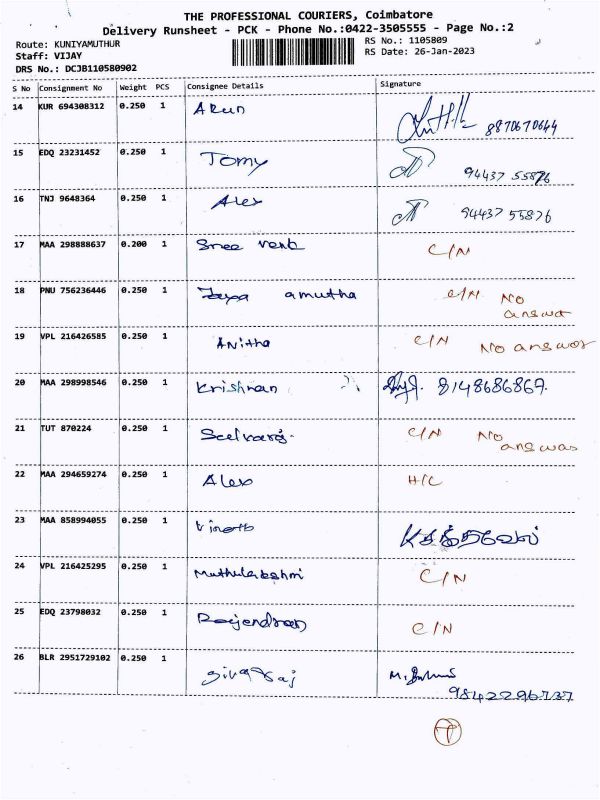 THE PROFESSIONAL COURIERS, Coimbatore
Delivery Runsheet - PCK - Phone No.:0422-3505555 - Page No.:2
Route: KUNIYAMUTHUR RS No.: 1105809
Staff: VIJAY RS Date: 26-Jan-2023
DRS No.: DCJB110580902
S No Consignment No Weight PCS Consignee Details Signature
14 KUR 694308312 0.250 1 Arun 8870670644
15 EDQ 23231452 0.250 1 Tomy 94437 55876
16 TNJ 9648364 0.250 1 Alex 94437 55876
17 MAA 298888637 0.200 1 Sree venk C/N
18 PNU 756236446 0.250 1 Jaya amutha C/N No
answer
19 VPL 216426585 0.250 1 Anitha C/N No answer
20 MAA 298998546 0.250 1 Krishnan 8148686867.
21 TUT 870224 0.250 1 Selvaraj. C/N No
answer
22 MAA 294659274 0.250 1 Alex H/C
23 MAA 858994055 0.250 1 Vinoth
24 VPL 216425295 0.250 1 Muthulakshmi C/N
25 EDQ 23798032 0.250 1 Rajendran C/N
26 BLR 2951729102 0.250 1 Sivaraj
9842296737